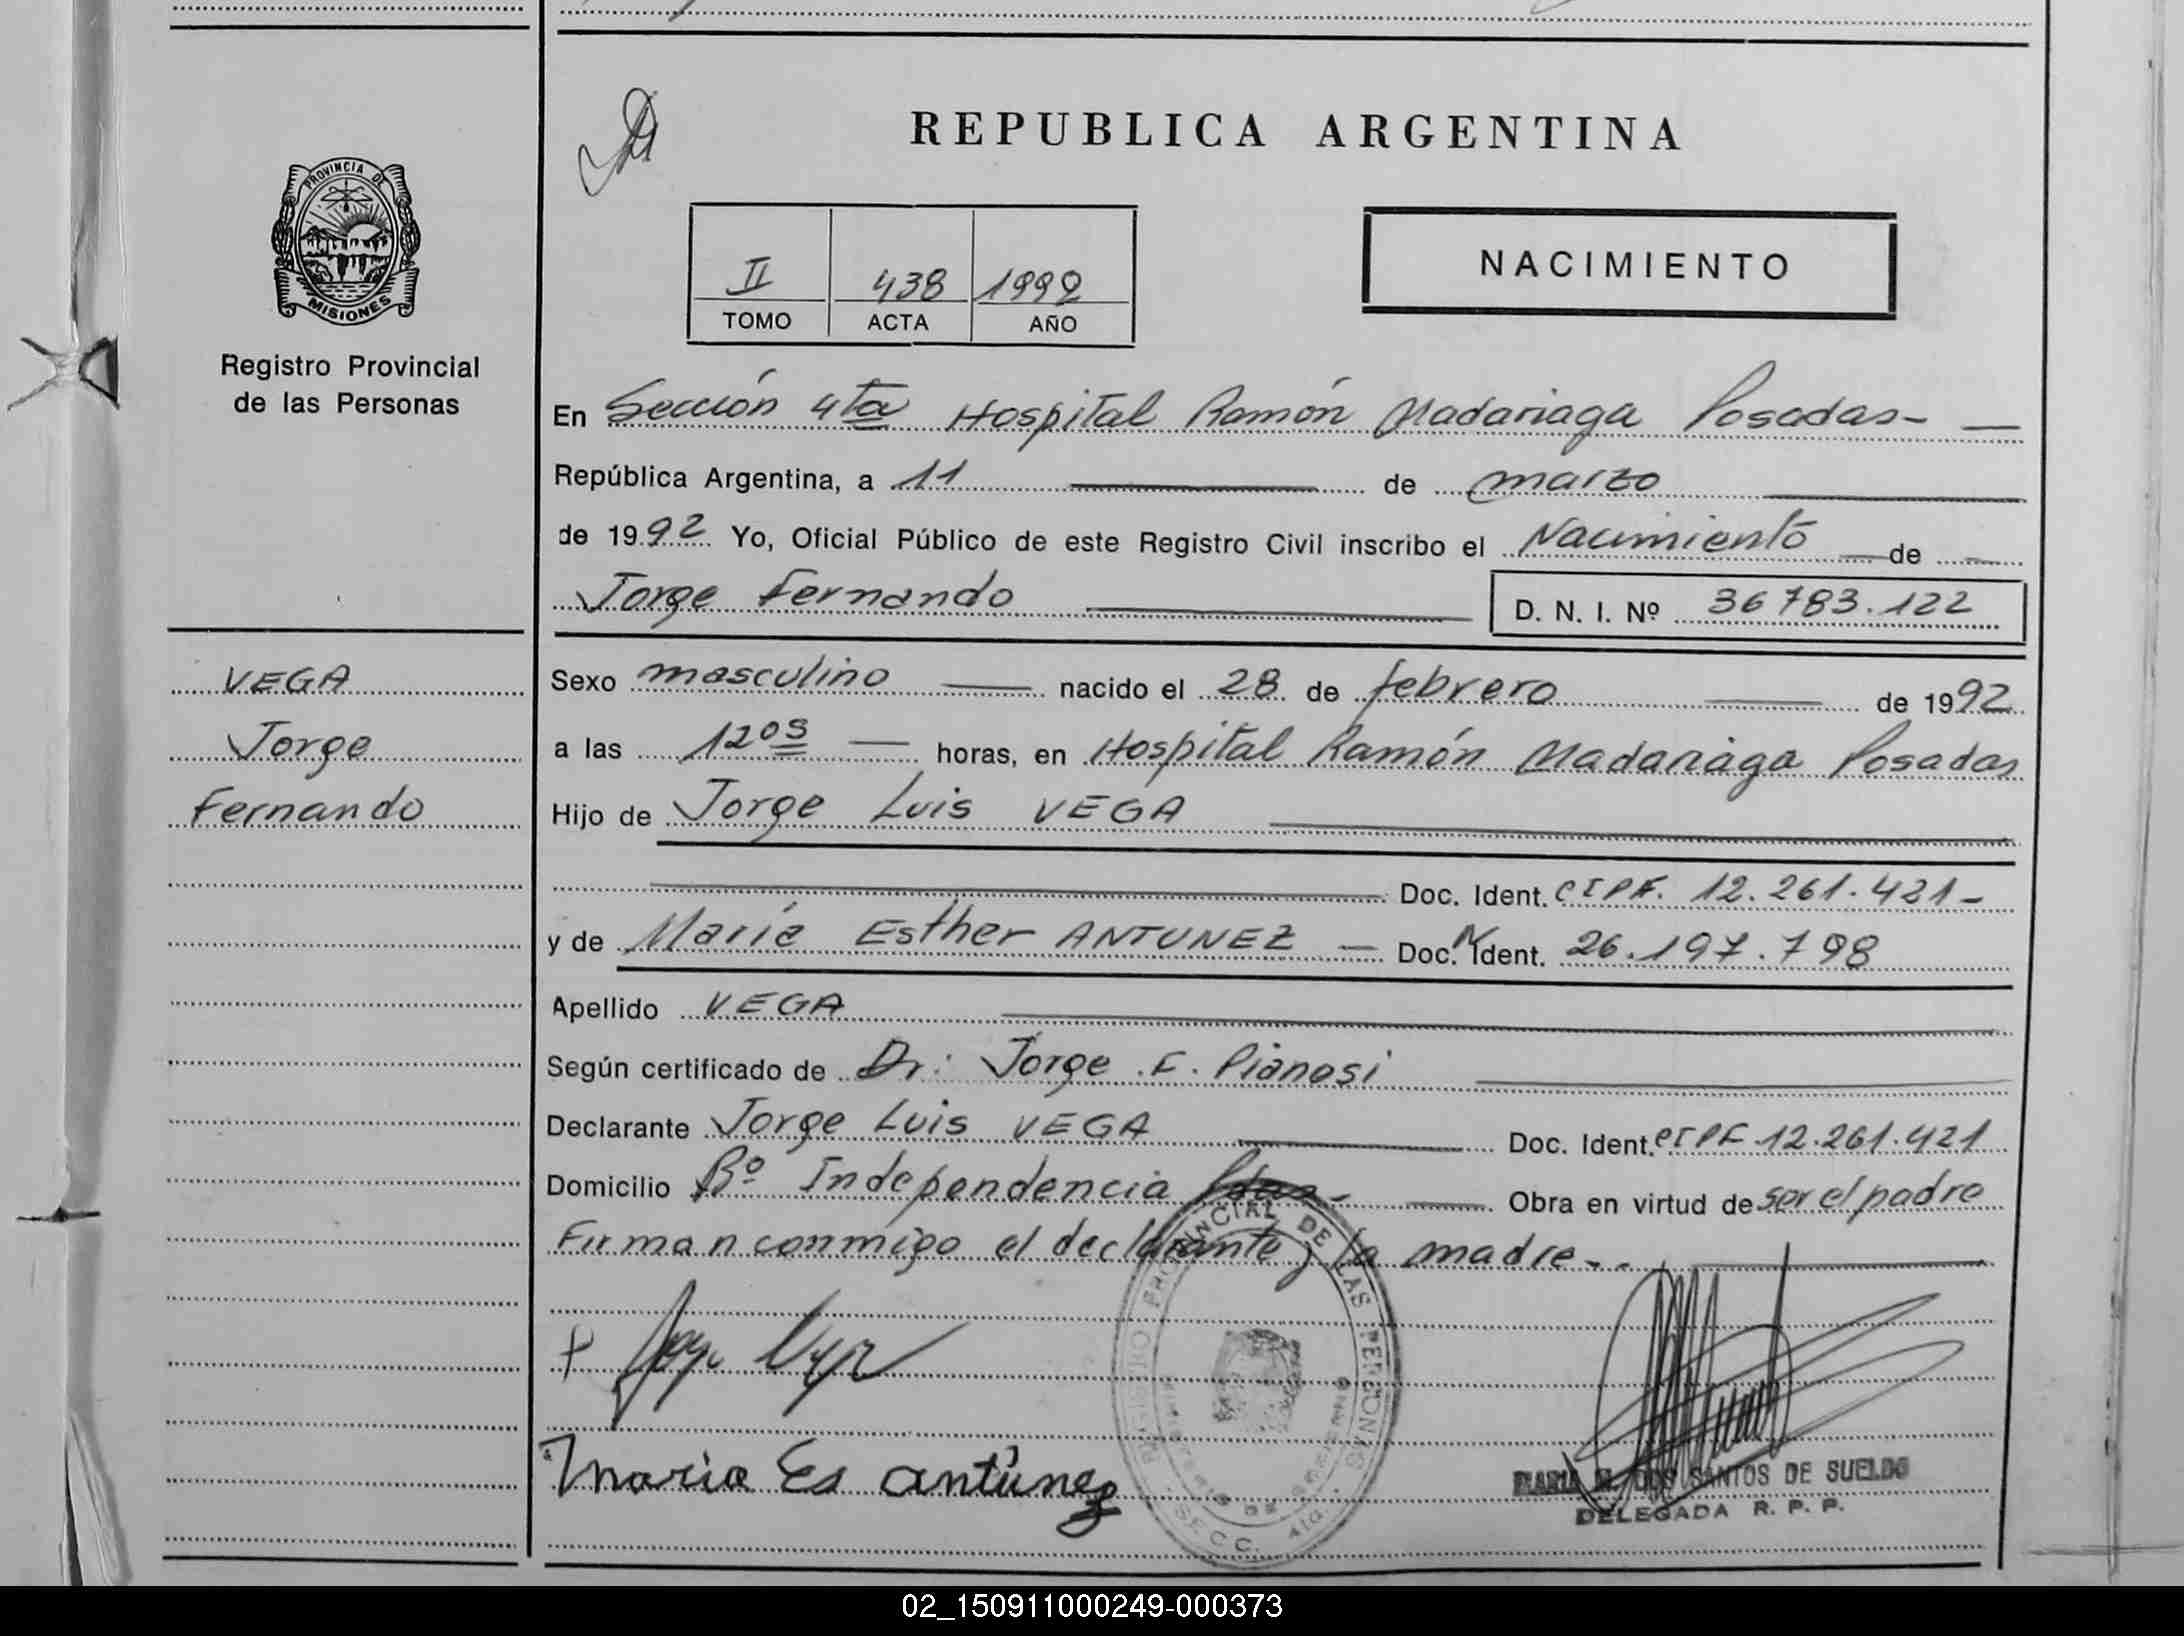 REPUBLICA ARGENTINA
PROVINCIA DE
MISIONES
Registro Provincial
de las Personas
II 438 1992
TOMO ACTA AÑO
NACIMIENTO
En Sección 4ta Hospital Ramón Madariaga Posadas-
República Argentina, a 11 de marzo
de 1992 Yo, Oficial Público de este Registro Civil inscribo el Nacimiento de
Jorge Fernando D. N. I. Nº 36783.122
VEGA
Jorge
Fernando
Sexo masculino nacido el 28 de febrero de 1992
a las 1205 horas, en Hospital Ramón Madariaga Posadas
Hijo de Jorge Luis VEGA
Doc. Ident. CIPF. 12.261.421-
y de María Esther ANTUNEZ Doc. Ident. 26.197.798
Apellido VEGA
Según certificado de Dr: Jorge F. Pianesi
Declarante Jorge Luis VEGA Doc. Ident. CIPF 12.261.421
Domicilio Bº Independencia Pdas.- Obra en virtud de ser el padre
Firman conmigo el declarante y la madre-.
REGISTRO PROVINCIAL DE LAS PERSONAS
SECC. 4ta.
Maria Es antúnez
MARIA M. DOS SANTOS DE SUELDO
DELEGADA R. P. P.
02_150911000249-000373